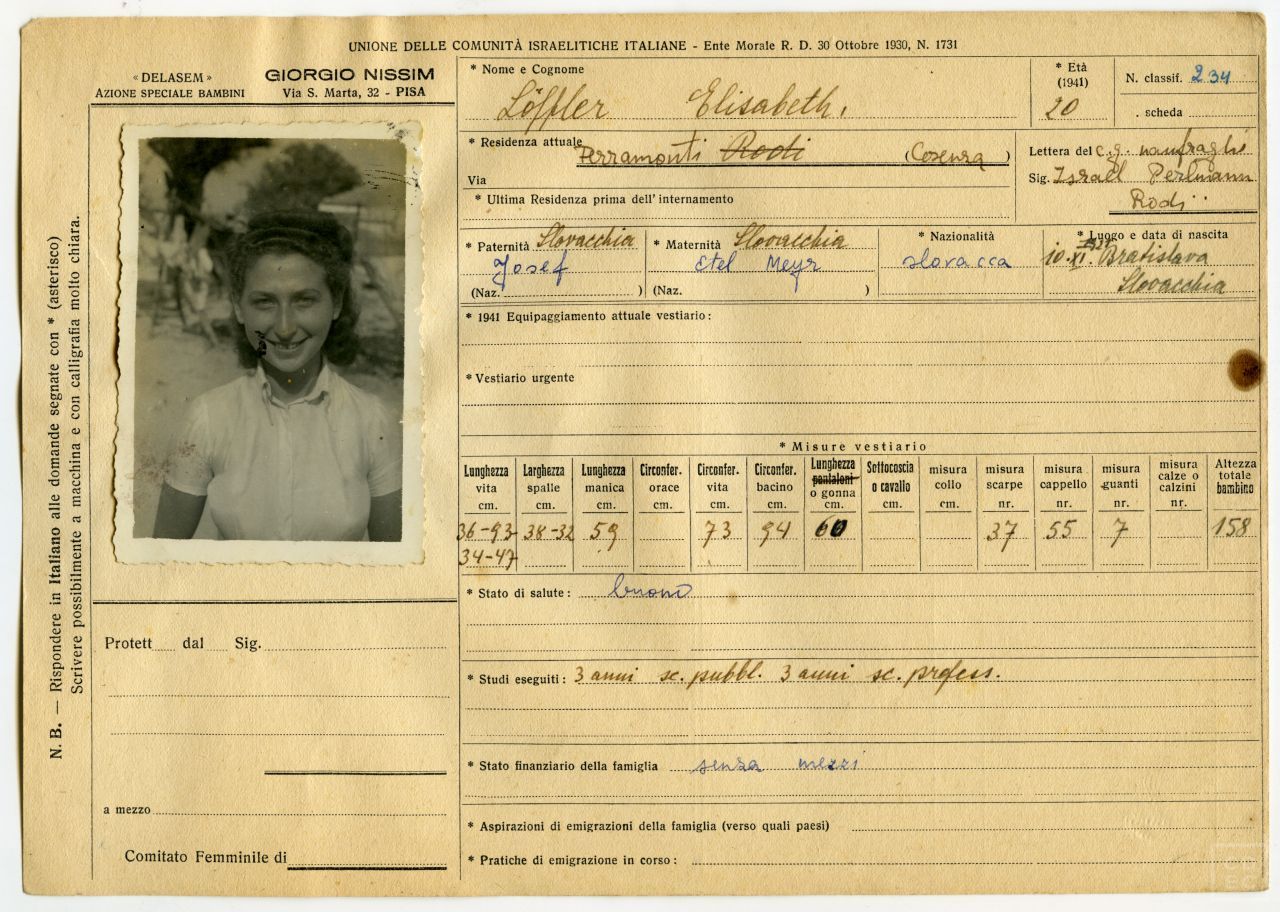 UNIONE DELLE COMUNITÀ ISRAELITICHE ITALIANE - Ente Morale R. D. 30 Ottobre 1930, N. 1731
« DELASEM »
AZIONE SPECIALE BAMBINI
GIORGIO NISSIM
Via S. Marta, 32 - PISA
N. B. — Rispondere in Italiano alle domande segnate con * (asterisco)
Scrivere possibilmente a macchina e con calligrafia molto chiara.
Protett dal Sig.
a mezzo
Comitato Femminile di
* Nome e Cognome
Löffler Elisabeth.
* Età
(1941)
20
N. classif. 234
. scheda
* Residenza attuale Ferramonti Rodi (Cosenza)
Via
* Ultima Residenza prima dell'internamento
Lettera del c.g. naufraghi
Sig. Israel Perlmann
Rodi
* Paternità Slovacchia
Josef
(Naz. )
* Maternità Slovacchia
Etel Meyr
(Naz. )
* Nazionalità
slovacca
* Luogo e data di nascita
10. XI. Bratislava
Slovacchia
* 1941 Equipaggiamento attuale vestiario :
* Vestiario urgente
* Misure vestiario
Lunghezza vita cm. 36-93 34-47
Larghezza spalle cm. 38-32
Lunghezza manica cm. 59
Circonfer. orace cm.
Circonfer. vita cm. 73
Circonfer. bacino cm. 94
Lunghezza pantaloni o gonna cm. 60
Sottocoscia o cavallo cm.
misura collo cm.
misura scarpe nr. 37
misura cappello nr. 55
misura guanti nr. 7
misura calze o calzini nr.
Altezza totale bambino 158
* Stato di salute : buono
* Studi eseguiti : 3 anni sc. pubbl. 3 anni sc. profess.
* Stato finanziario della famiglia senza mezzi
* Aspirazioni di emigrazioni della famiglia (verso quali paesi)
* Pratiche di emigrazione in corso :